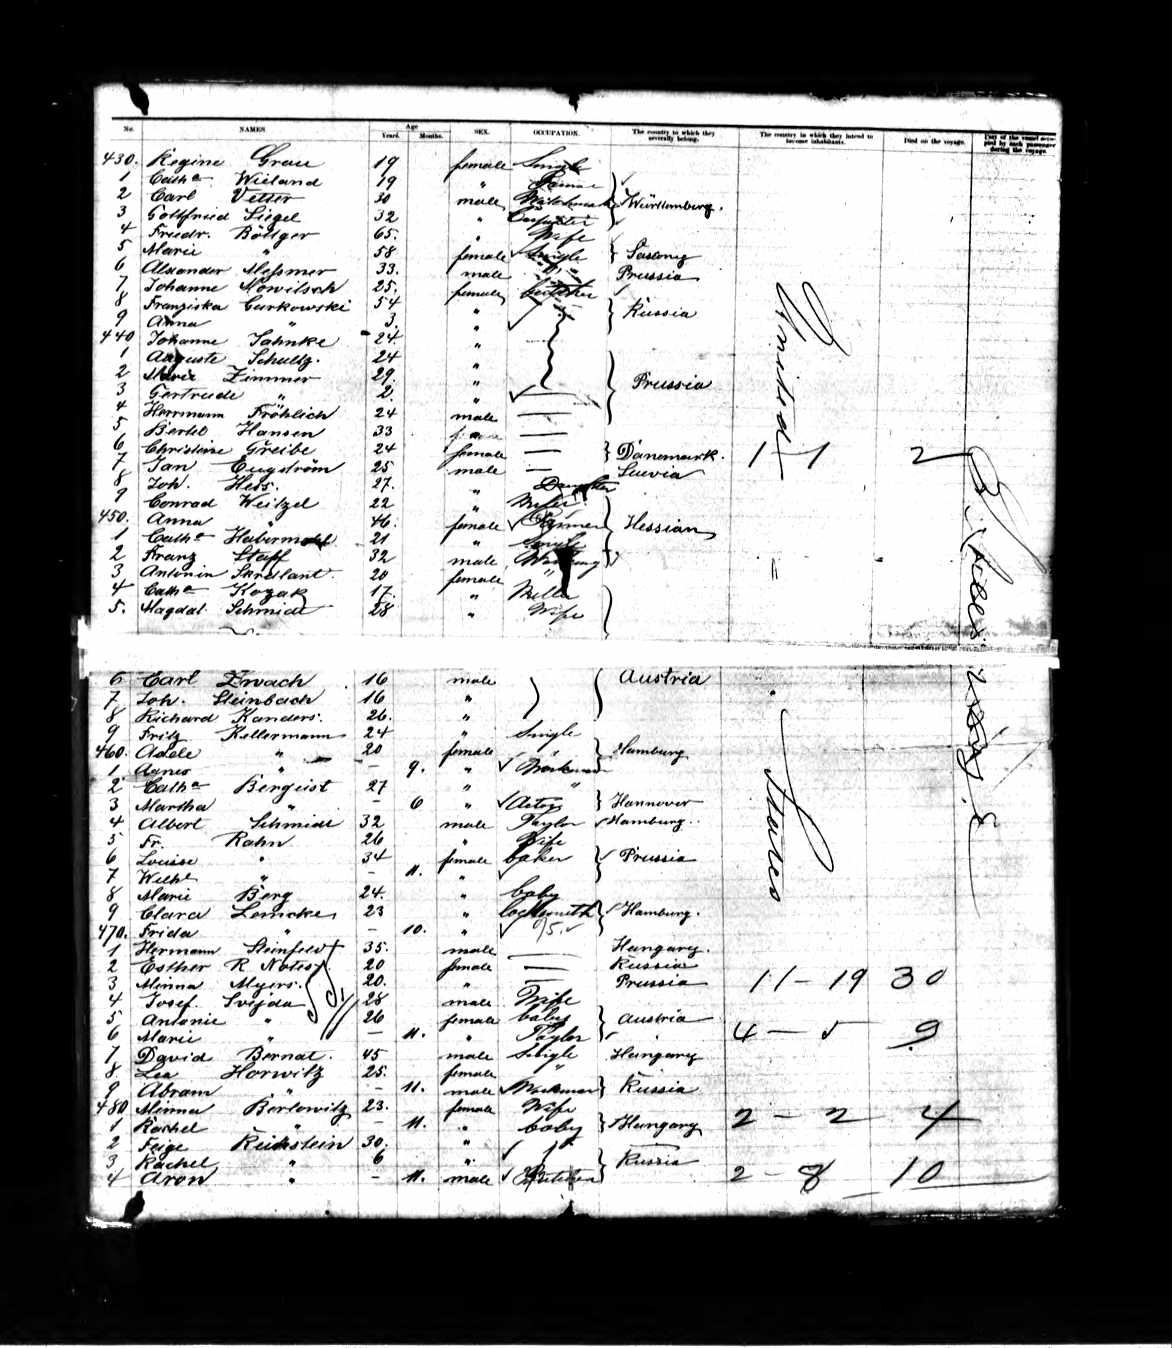 No. NAMES Age Years. Months. SEX. OCCUPATION. The country to which they severally belong. The country in which they intend to become inhabitants. Died on the voyage. Part of the vessel occupied by each passenger during the voyage.
430. Regine Grau 19 female Single
1 Cath.a Wieland 19 " Farmer
2 Carl Vetter 30 male Württemberg.
3 Gottfried Siegel 32 " Carpenter
4 Friedr. Böttger 65. " Wife
5 Marie " 58 female Single
6 Alexander Messmer 33. male " Prussia
7 Johanne Nowitsch 25. female
8 Franziska Carkowski 54 " Russia
9 Anna " 3. "
440 Johanne Jahnke 24. "
1 Auguste Schultz. 24 "
2 Marie Zimmer 29. " Prussia
3 Gertrude " 2. "
4 Herrmann Fröhlich 24 male
5 Bertel Hansen 33
6 Christine Greibe 24 female Dänemark. 1 1 2
7 Jan Engström 25 male
8 Joh. Hess. 27. "
9 Conrad Weitzel 22 "
450. Anna " 46. female Farmer Hessian
1 Cath.a 21 " Single
2 Franz Staff 32 male
3 Antonin 20 female "
4 Cath.a Kozak 17. " Miller
5. Magdal. Schmidt 28 " Wife
United
States
6 Carl Zwach 16 male Austria
7 Joh. Steinbach 16 "
8 Richard Kanders. 26. "
9 Fritz Kellermann 24 " Single
460. Adele " 20 female Hamburg
1 Agnes " – 9. " Workman
2 Cath.a Bergeist 27 " "
3 Martha " – 6 " Hannover
4 Albert Schmidt 32 male Taylor Hamburg.
5 Fr. Rahn 26 " Wife
6 Louise " 34 female baker Prussia
7 Wilh.e " – 11. "
8 Marie Berg 24. " baby
9 Clara Lemcke 23 " locksmith Hamburg.
470. Frida " – 10. "
1 Hermann Steinfeld 35. male Hungary.
2 Esther R. Notes 20 female Russia
3 Minna Myers. 20. " Prussia 11 – 19 30
4 Josef. Svejda 28 male Wife
5 Antonie " 26 female baby Austria
6 Marie " – 11. " Taylor 4 – 5 9
7 David Bernat. 45 male Single Hungary
8 Lea Horwitz 25. female "
9 Abram " – 11. male Workman Russia
480 Minna Berlowitz 23. female Wife
1 Rachel " – 11. " baby Hungary 2 – 2 4
2 Feige Reichstein 30. "
3 Rachel " 6 " Russia
4 Aron " – 11. male 2 – 8 10